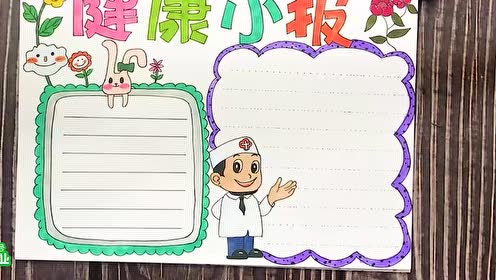 健康小报
业